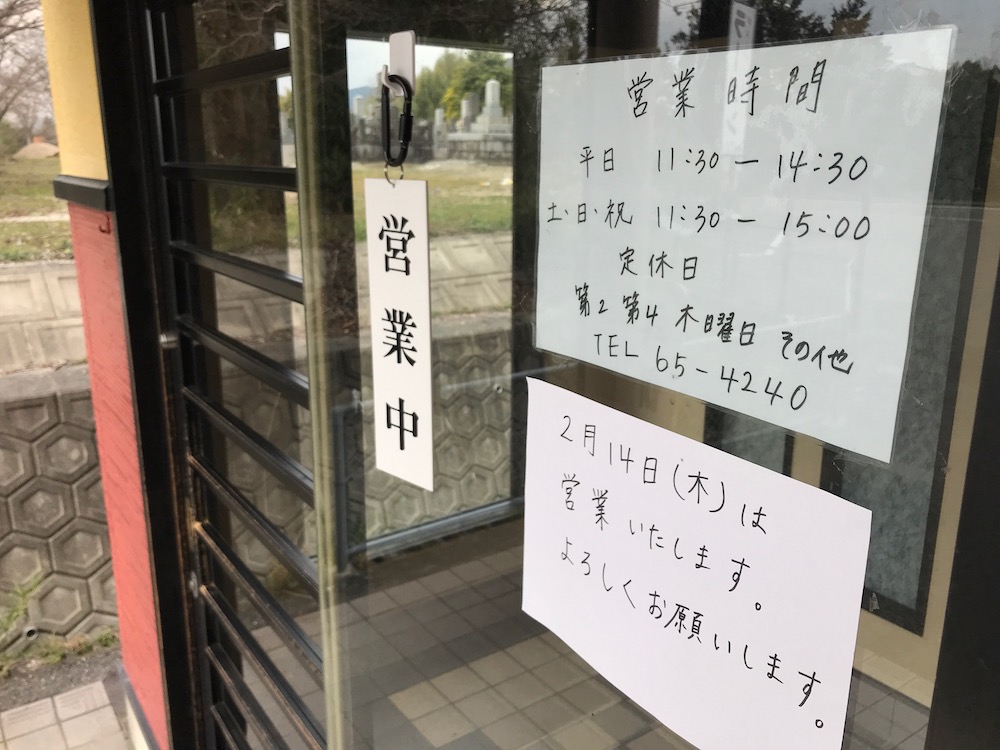 営業中
営業時間
平日 11:30 — 14:30
土・日・祝 11:30 — 15:00
定休日
第2 第4 木曜日 その他
TEL 65-4240
2月14日(木)は
営業いたします。
よろしくお願いします。